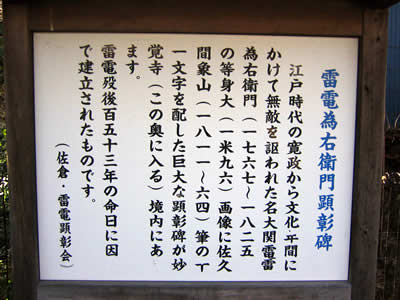 雷電為右衛門顕彰碑
江戸時代の寛政から文化年間に
かけて無敵を謳われた名大関雷電
為右衛門(一七六七〜一八二五
の等身大(一米九六)画像に佐久
間象山(一八一一〜六四)筆の
一文字を配した巨大な顕彰碑が妙
覚寺(この奥に入る)境内にあ
ます。
雷電歿後百五十三年の命日に因
で建立されたものです。
(佐倉・雷電顕彰会)